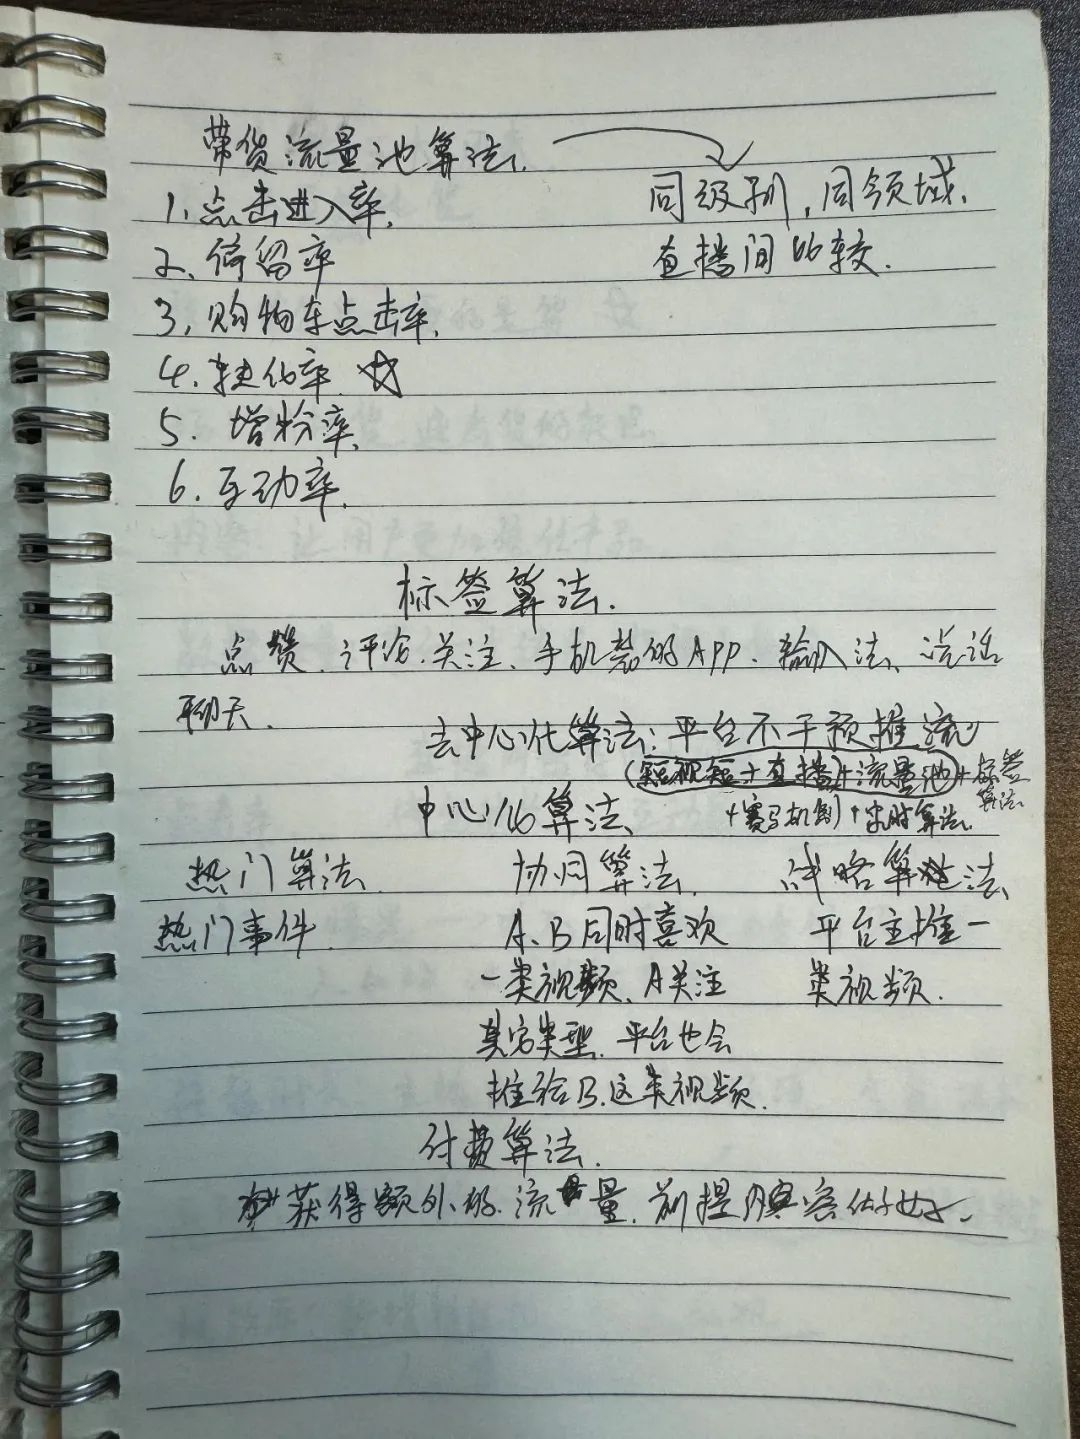 带货流量池算法.
同级别,同领域.
直播间比较.
1.点击进入率.
2.停留率
3.购物车点击率.
4.转化率.☆
5.增粉率.
6.互动率.
标签算法.
点赞.评论.关注、手机装的APP、输入法、说话
聊天.
去中心化算法:平台不干预推流
(短视短+直播)+流量池+标签算法
+赛马机制+实时算法.
中心化算法
热门算法.
热门事件.
协同算法.
A、B同时喜欢
一类视频、A关注
其它类型.平台也会
推给B.这类视频.
战略算法
平台主推一
类视频.
付费算法.
获得额外的流量.前提内容优好.